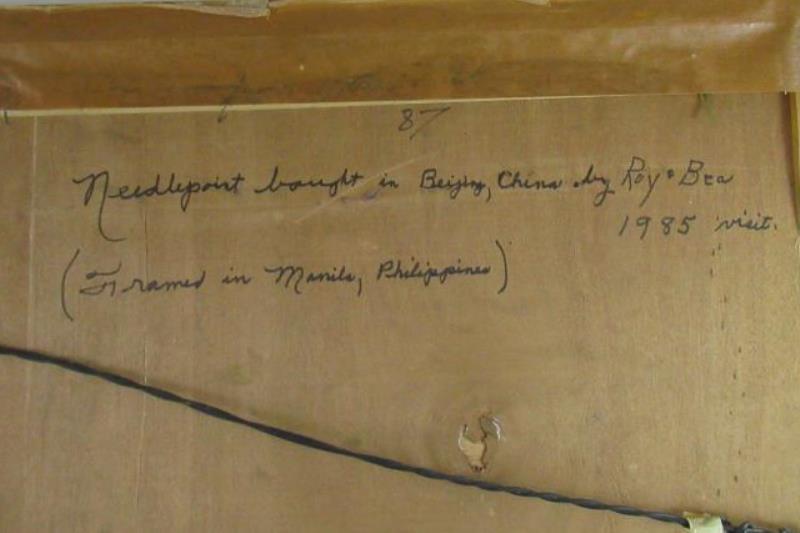 87
Needlepoint bought in Beijing, China by Roy & Bea
1985 visit.
(Framed in Manila, Philippines)